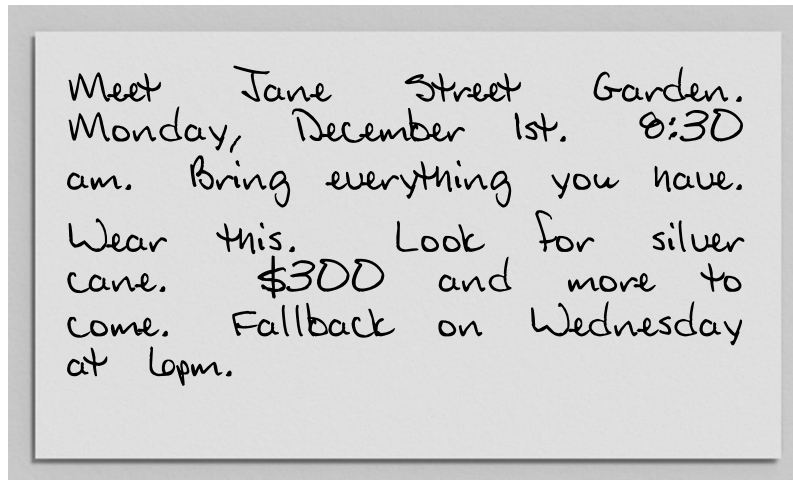 Meet Jane Street Garden.
Monday, December 1st. 8:30
am. Bring everything you have.
Wear this. Look for silver
cane. $300 and more to
come. Fallback on Wednesday
at 6pm.